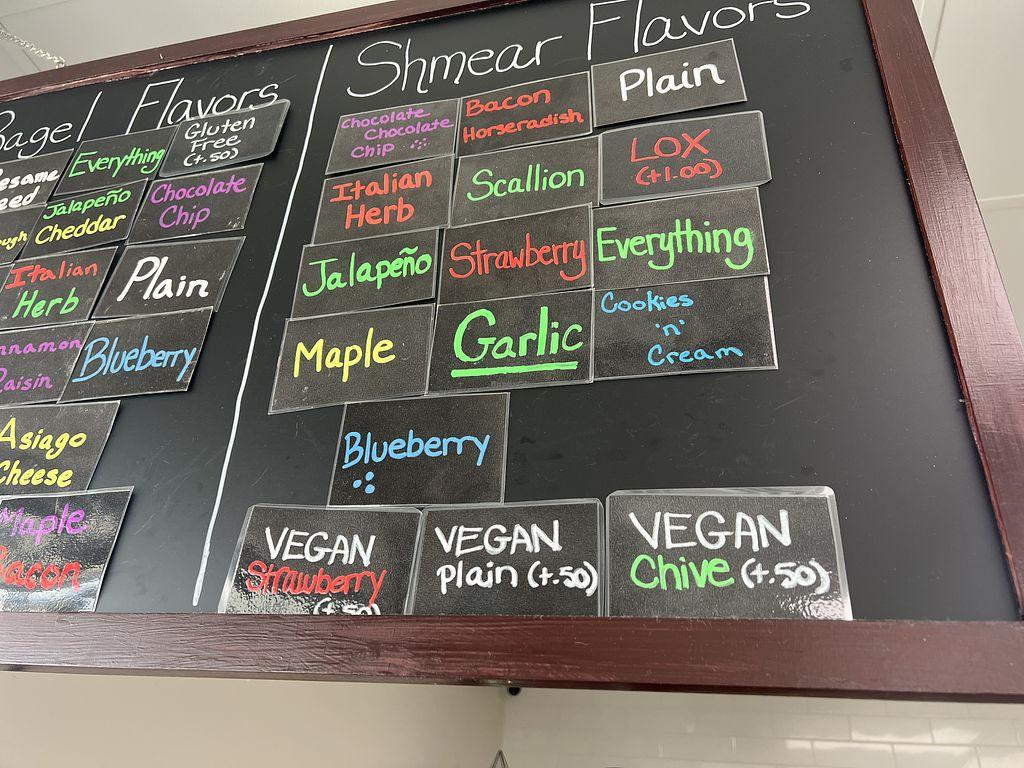 Bagel Flavors
Sesame
Seed
Everything
Gluten
Free
(+.50)
Jalapeño
Cheddar
Chocolate
Chip
Italian
Herb
Plain
Cinnamon
Raisin
Blueberry
Asiago
Cheese
Maple
Bacon
Shmear Flavors
Chocolate
Chocolate
Chip
Bacon
Horseradish
Plain
Italian
Herb
Scallion
LOX
(+1.00)
Jalapeño
Strawberry
Everything
Maple
Garlic
Cookies
'n'
Cream
Blueberry
VEGAN
Strawberry
(+.50)
VEGAN
plain (+.50)
VEGAN
Chive (+.50)